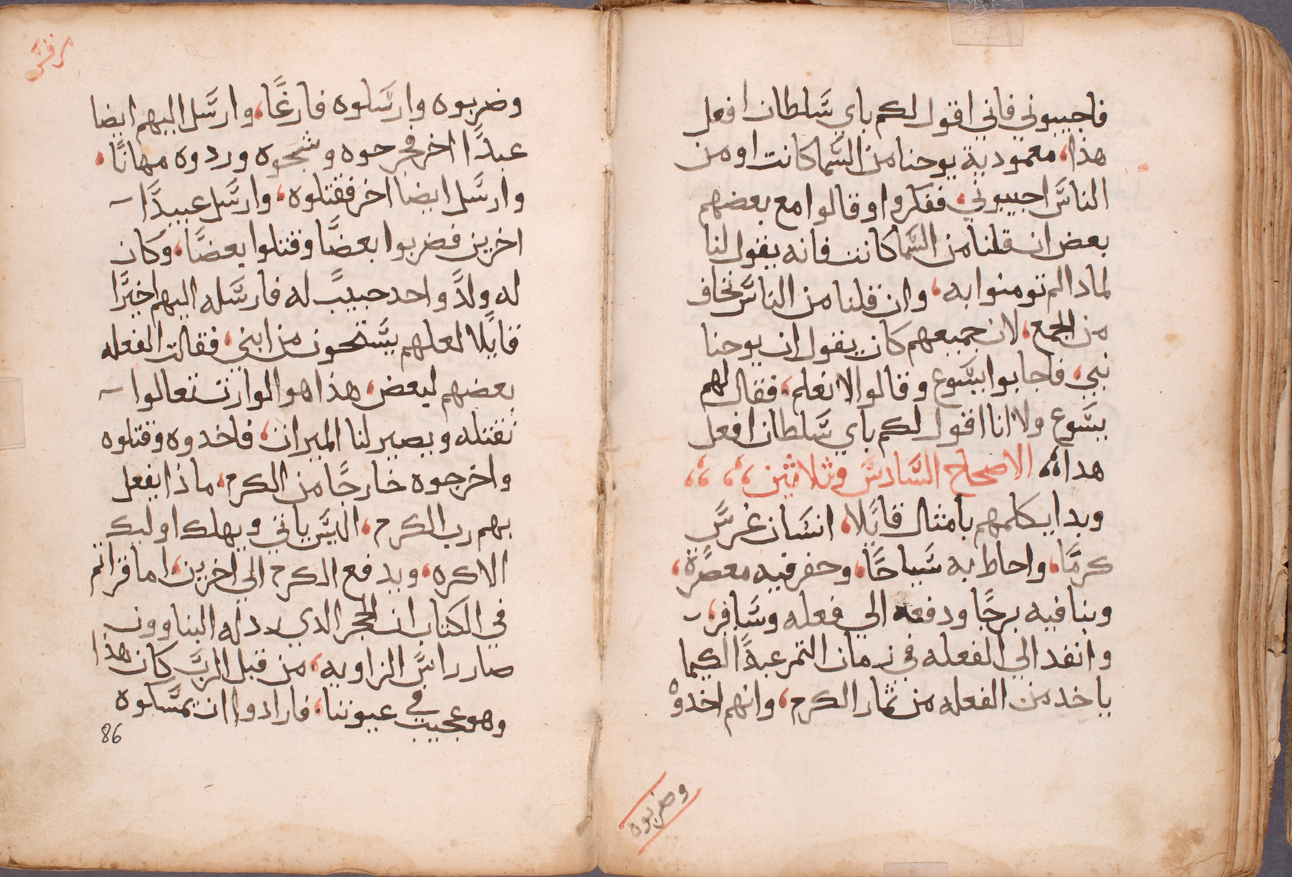 فاجيبوني فاني اقول لكم باي سَّلطان افعل
هذا، معمودية يوحنا من السَّما كانت او من
الناسَّ اجيبوني، ففكروا وقالوا مع بعضهم
بعض ان قلنا من السَّما كانت فانه يقول لنا
لمادا لم تومنوا به، وان قلنا من الناسَّ نخاف
من الجمع، لان جميعهم كان يقول ان يوحنا
نبي، فاجابوا يسَّوع وقالوا لا نعلم، فقال لهم
يسَّوع ولا انا اقول لكم باي سَّلطان افعل
هدا، الاصحاح السَّادسَّ وثلاثين،،،،
وبدا يكلمهم بامثال قايلا، انسَان غرسَّ
كرمًا، واحاط به سَّياجًا، وحفر فيه معصرَة،
وبنا فيه برجًا ودفعه الي فعله وسَّافر،
وانفد الي الفعله في زمان التمر عبدًا لكيما
ياخد من الفعله من ثمار الكرم، وانهم اخدوْ
وضربوه
وضربوه وارسَّلوه فارغًا، وارسَّل اليهم ايضا
عبدًا اخر فجرحوه وشجوه وردوه مهانًا،
وارسَّل ايضا اخر فقتلوه، وارسَّل عبيدًا
اخرين فضربوا بعضًا وقتلوا بعضًا، وكان
له ولدً واحد حبيبً له فارسَّله اليهم اخيرًا
قايلا لعلهم يسَّتحون من ابني، فقالت الفعله
بعضهم لبعض، هذا هو الوارت تعالوا
نقتله ويصير لنا الميراث، فاخدوه وقتلوه
واخرجوه خارجًا من الكرم، ماذا يفعل
بهم رب الكرم، اليسَّ ياتي ويهلك اوليك
الاكره، ويدفع الكرم الي اخرين، اما قراتم
في الكتاب ان الحجر الدي ردله البناوون
صار راسَّ الزاويه، من قبل الربَّ كان هذا
وهو عجيب في عيوننا، فارادوا ان يمسَّكوه
86